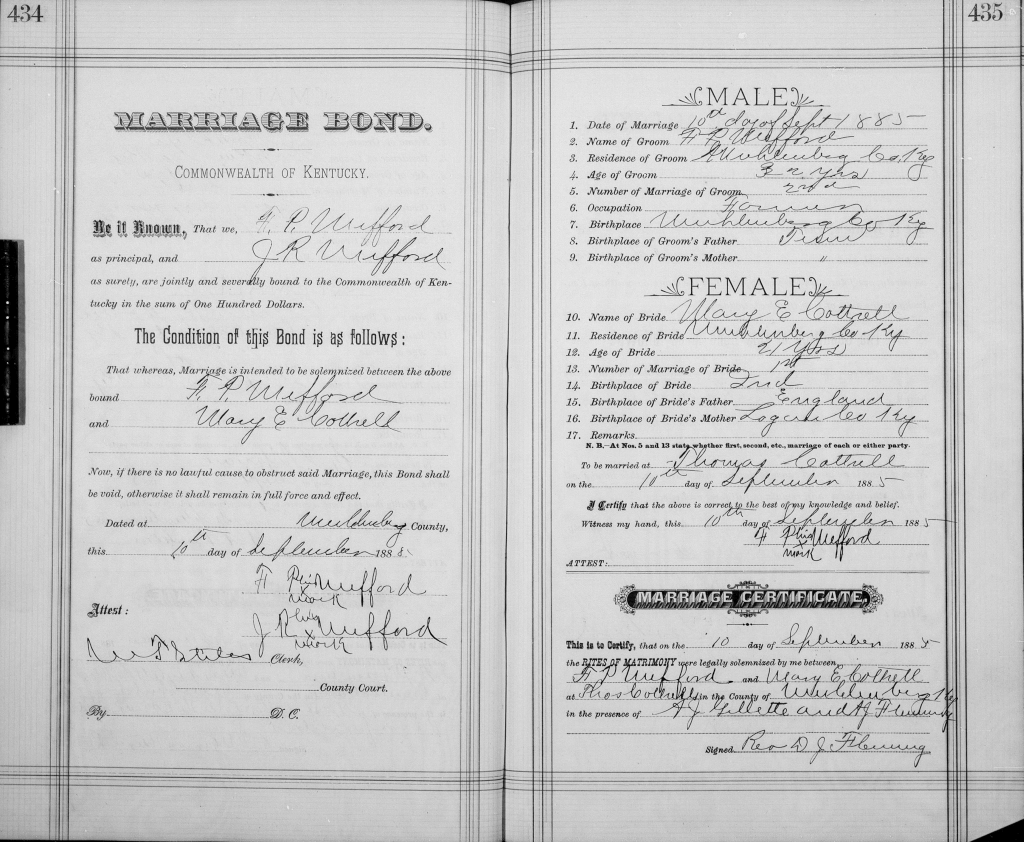 434
MARRIAGE BOND.
COMMONWEALTH OF KENTUCKY.
Be it Known, That we, F. P. Mefford
as principal, and J R Mefford
as surety, are jointly and severally bound to the Commonwealth of Ken-
tucky in the sum of One Hundred Dollars.
The Condition of this Bond is as follows:
That whereas, Marriage is intended to be solemnized between the above
bound F. P. Mefford
and Mary E Cottrell
Now, if there is no lawful cause to obstruct said Marriage, this Bond shall
be void, otherwise it shall remain in full force and effect.
Dated at Muhlenberg County,
this 10th day of September 1885
F P his Mefford
x
mark
Attest:
J R his Mefford
x
mark
Clerk,
County Court.
By D. C.
435
MALE
1. Date of Marriage 10th day of Sept 1885
2. Name of Groom F P Mefford
3. Residence of Groom Muhlenberg Co, Ky
4. Age of Groom 32 yrs
5. Number of Marriage of Groom 2nd
6. Occupation Farmer
7. Birthplace Muhlenberg Co Ky
8. Birthplace of Groom's Father Tenn
9. Birthplace of Groom's Mother "
FEMALE
10. Name of Bride Mary E Cottrell
11. Residence of Bride Muhlenberg Co Ky
12. Age of Bride 21 Yrs
13. Number of Marriage of Bride 1st
14. Birthplace of Bride Ind
15. Birthplace of Bride's Father England
16. Birthplace of Bride's Mother Logan Co Ky
17. Remarks
N. B.—At Nos. 5 and 13 state whether first, second, etc., marriage of each or either party.
To be married at Thomas Cottrell
on the 10th day of September 1885
I Certify that the above is correct to the best of my knowledge and belief.
Witness my hand, this 10th day of September 1885
F P his Mefford
x
mark
ATTEST:
MARRIAGE CERTIFICATE.
This is to Certify, that on the 10 day of September 1885
the RITES OF MATRIMONY were legally solemnized by me between
F P Mefford and Mary E Cottrell
at Thos Cottrell in the County of Muhlenberg Ky
in the presence of A J Gillette and J Fleming
Signed Rev D J Fleming